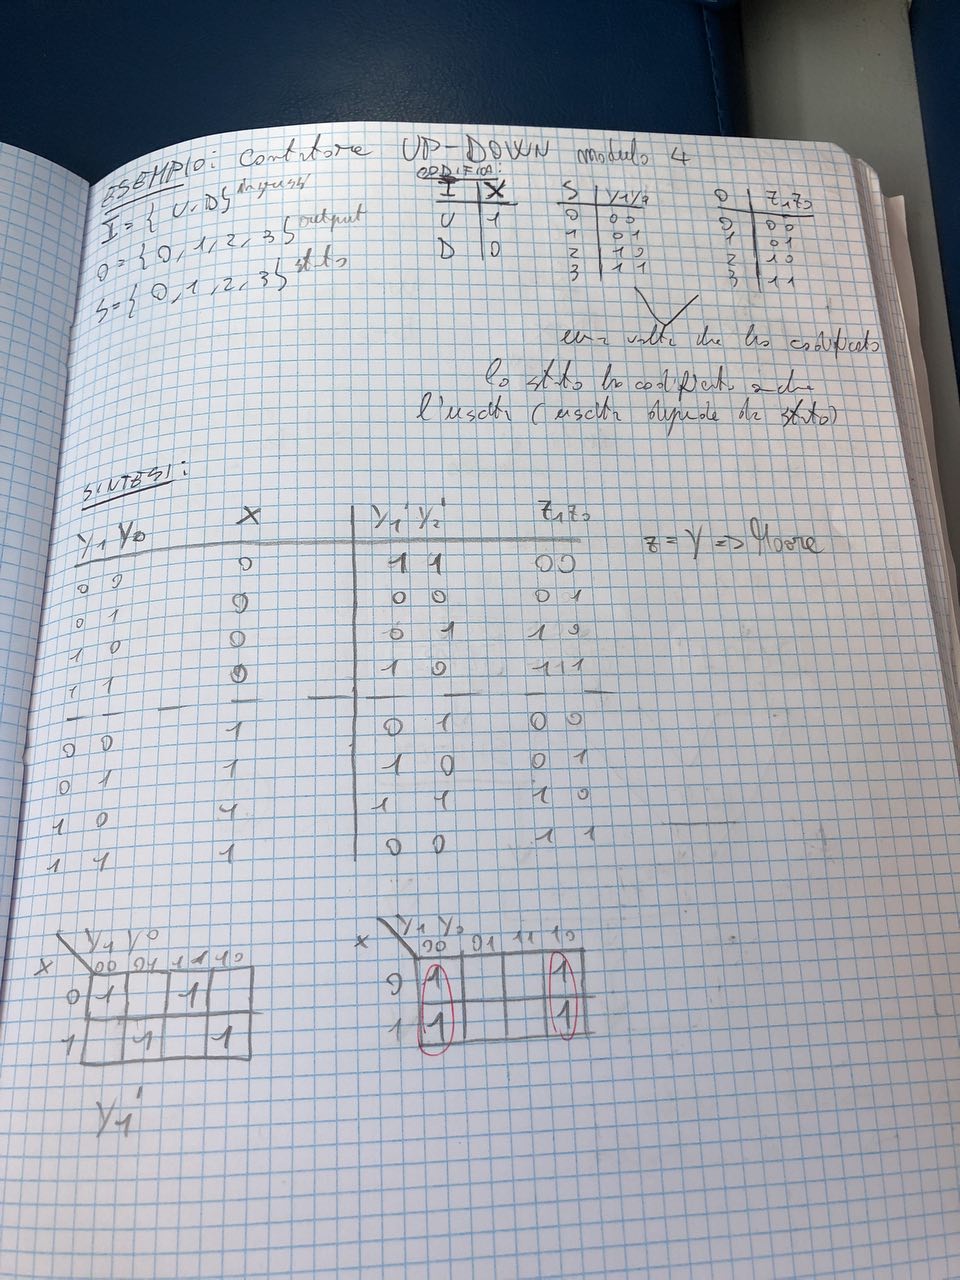 ESEMPIO: Contatore UP-DOWN modulo 4
I = { U, D} ingressi
O = { 0, 1, 2, 3} output
S = { 0, 1, 2, 3} stato
CODIFICA:
I X
U 1
D 0
S Y1Y0
0 00
1 01
2 10
3 11
O Z1Z0
0 00
1 01
2 10
3 11
una volta che ho codificato
lo stato ho codificato anche
l'uscita (uscita dipende da stato)
SINTESI:
Y1 Y0 X Y1' Y2' Z1Z0
0 0 0 1 1 00
0 1 0 0 0 0 1
1 0 0 0 1 1 0
1 1 0 1 0 111
0 0 1 0 1 0 0
0 1 1 1 0 0 1
1 0 1 1 1 1 0
1 1 1 0 0 1 1
z = Y => Moore
Y1 Y0
X 00 01 11 10
0 1 1
1 1 1
Y1'
Y1 Y0
X 00 01 11 10
0 1 1
1 1 1